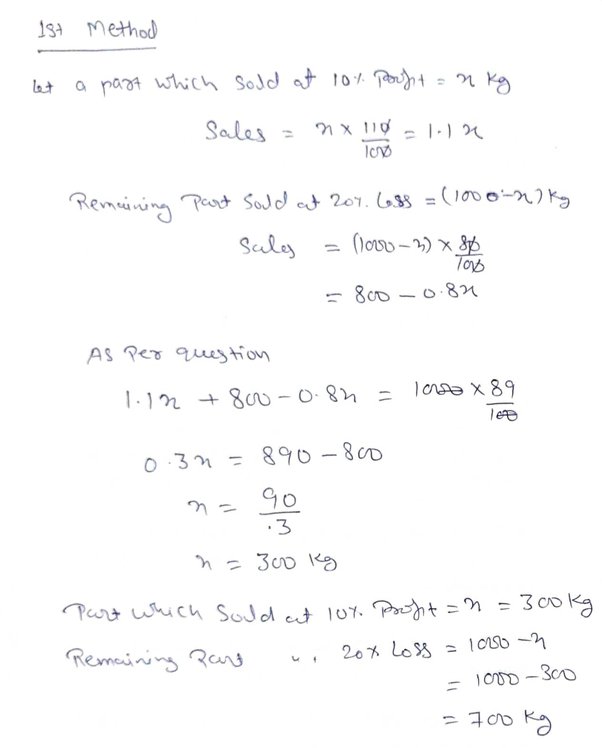 1st Method
Let a part which Sold at 10% Profit = x Kg
Sales = x × 110/100 = 1.1 x
Remaining Part Sold at 20% Loss = (1000 - x) Kg
Sales = (1000 - x) × 80/100
= 800 - 0.8x
As Per question
1.1x + 800 - 0.8x = 1000 × 89/100
0.3x = 890 - 800
x = 90/.3
x = 300 Kg
Part which Sold at 10% Profit = x = 300 Kg
Remaining Part ,, 20% Loss = 1000 - x
= 1000 - 300
= 700 Kg